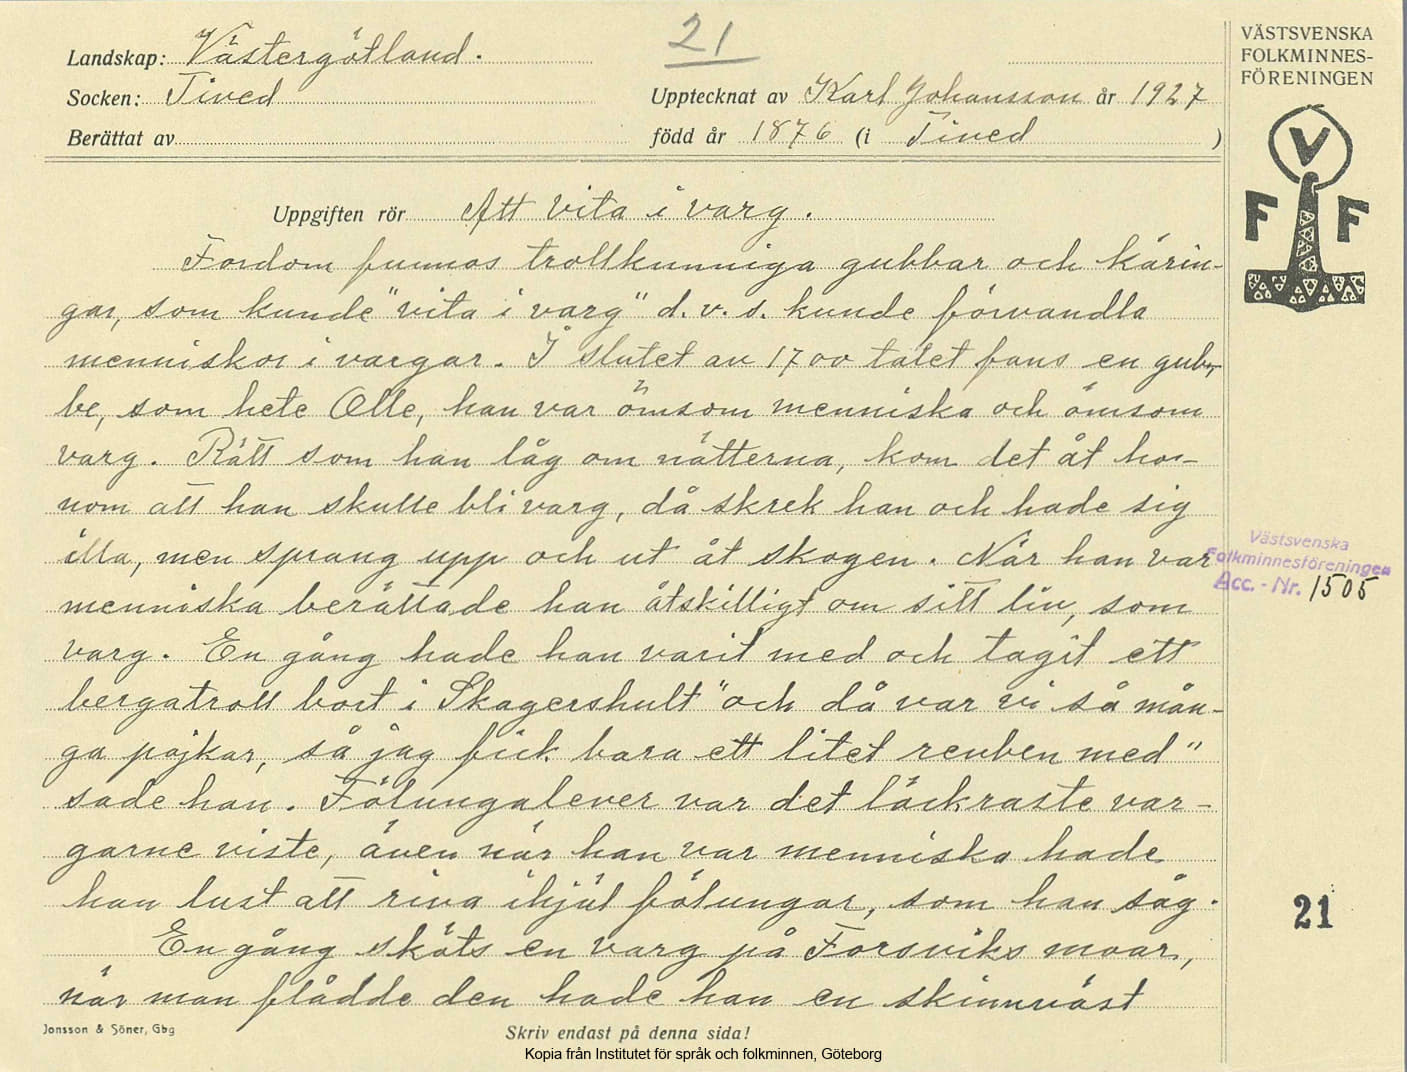 21
Landskap: Västergötland.
Socken: Tived
Upptecknat av Karl Johansson år 1927
Berättat av
född år 1876 (i Tived )
VÄSTSVENSKA
FOLKMINNES-
FÖRENINGEN
V
F F
Uppgiften rör Att vita i varg.
Fordom funnos trollkunniga gubbar och kärin-
gar, som kunde "vita i varg" d.v.s. kunde förvandla
menniskor i vargar. I slutet av 1700 talet fans en gub-
be, som hete Olle, han var ömsom menniska och ömsom
varg. Rätt som han låg om nätterna, kom det åt ho-
nom att han skulle bli varg, då skrek han och hade sig
illa, men sprang upp och ut åt skogen. När han var
menniska berättade han åtskilligt om sitt liv, som
varg. En gång hade han varit med och tagit ett
bergatroll bort i Skagershult "och då var vi så mån-
ga pojkar, så jag fick bara ett litet renben med"
sade han. Fölungalever var det läckraste var-
garne viste, även när han var menniska hade
han lust att riva ihjäl fölungar, som han såg.
En gång sköts en varg på Forsviks moar,
när man flådde den hade han en skinnväst
Västsvenska
Folkminnesföreningen
Acc.-Nr. 1505
21
Jonsson & Söner, Gbg
Skriv endast på denna sida!
Kopia från Institutet för språk och folkminnen, Göteborg